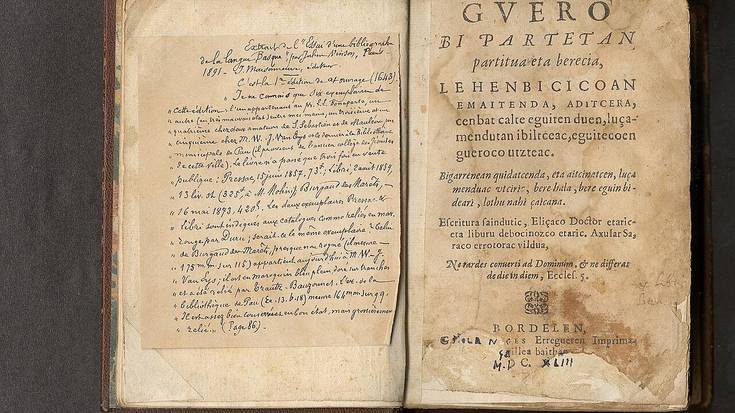 Extrait de l'"Essai d'une bibliographie
de la langue Basque" par Julien Vinson, Paris
1891 - J. Maisonneuve, éditeur.
C'est la 1ère édition de cet ouvrage (1643).
"Je ne connais que six exemplaires de
"Cette édition: l'un appartenant au pr. L. L. Bonaparte, un
"autre (en très mauvais état) entre mes mains, un troisième et un
"quatrième chez deux amateurs de St Sébastien et de Mauléon, un
"cinquième chez M. W. J. Van Eys et le dernier à la Bibliothèque
"municipale de Pau (il provient de l'ancien collège des
"de cette ville). Le livre n'a passé que trois fois en vente
"publique: Pressac, 15 juin 1857, 73f; Libri, 2 août 1859,
"13 liv. st. (325f), à M.; Burgaud des Marets,
"16 mai 1873, 420f. Les deux exemplaires Pressac &
"Libri sont indiqués aux catalogues comme reliés en mar.
"rouge par Duru; serait-ce le même exemplaire? Celui
"de Burgaud des Marets, presque non rogné (il mesure
"175mm sur 115) appartient aujourd'hui à M. W. J.
"Van Eys; il est en maroquin bleu plein, doré sur tranches
"et a été relié par Trautz-Bauzonnet. L'ex. de la
"bibliothèque de Pau (Ee. 13. b. 18) mesure 164mm sur 99.
"Il est assez bien conservé et en bon état, mais grossièrement
"relié." (Page 86).
GVERO
BI PARTETAN
partitua eta berecia,
LEHENBICICOAN
EMAITENDA, ADITCERA,
cenbat calte eguiten duen, luça-
mendutan ibiltceac, eguitecoen
gueroco utzteac.
Bigarrenean quidatcenda, eta aitcinatcen, luça
menduac vtciric, bere hala, bere eguin bi-
deari, lothu nahi çaicana.
Escritura saindutic, Eliçaco Doctor etaric-
eta liburu debocinozco etaric. Axular Sa,
raco errotorac vildua,
Ne tardes conuerti ad Dominum, & ne differas
de die in diem, Ecclef. 5.
BORDELEN,
G. MILANGES Erregueren Imprima-
çaillea baitha
M.D C. XLIII